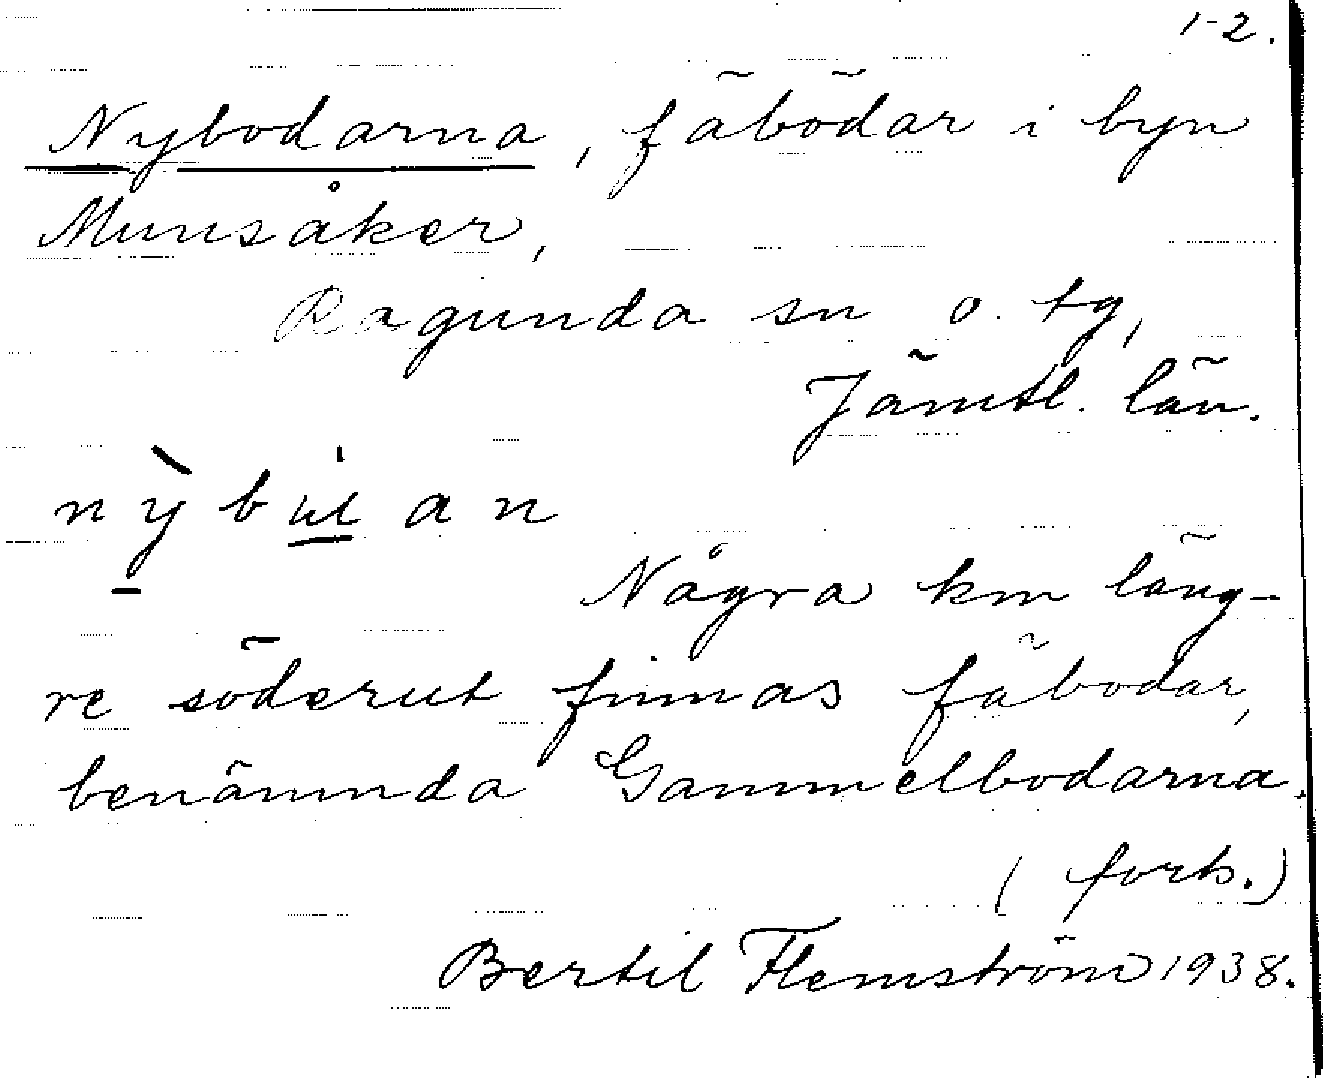 1-2.
Nybodarna, fäbodar i byn
Munsåker,
Ragunda sn o. tg,
Jämtl. län.
Några km läng-
re söderut finnas fäbodar,
benämnda Gammelbodarna.
(forts.)
Bertil Flemström 1938.